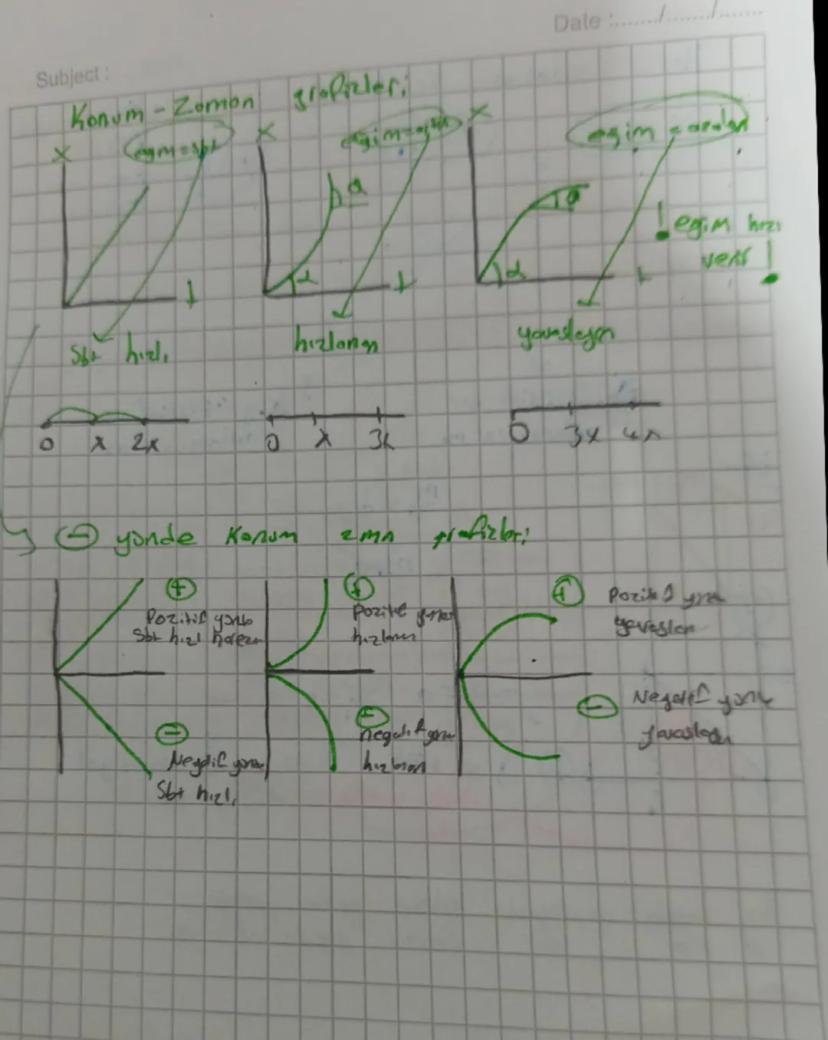 Date :....../....../......
Subject :
Konum - Zaman grafikleri
x
eğim = sbt
x
x
eğim = azalan
! eğim hızı
verir !
α
α
α
t
t
t
sbt hızlı
hızlanan
yavaşlayan
0 x 2x
0 x 3x
0 3x 4x
(-) yönde Konum zmn grafikleri
(+)
Pozitif yönde
sbt hızlı
(+)
Pozitif yönde
hızlanan
(+)
Pozitif yönde
yavaşlayan
(-)
Negatif yönde
Sbt hızlı
(-)
negatif yönde
hızlanan
(-)
Negatif yönde
yavaşlayan